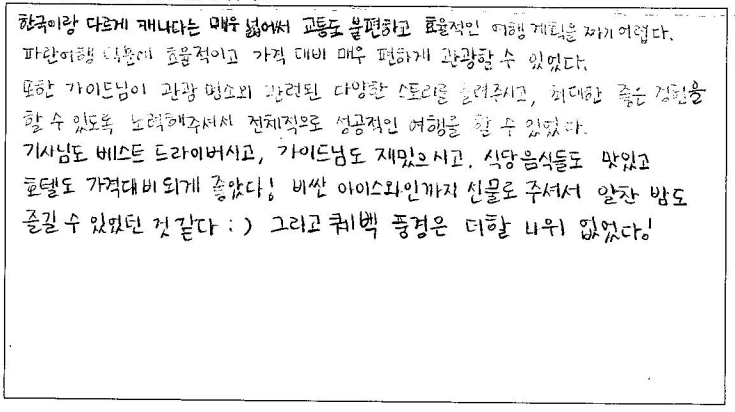 한국이랑 다르게 캐나다는 매우 넓어서 교통도 불편하고 효율적인 여행 계획을 짜기 어렵다.
파란여행 덕분에 효율적이고 가격 대비 매우 편하게 관광할 수 있었다.
또한 가이드님이 관광 명소와 관련된 다양한 스토리를 들려주시고, 최대한 좋은 경험을
할 수 있도록 노력해주셔서 전체적으로 성공적인 여행을 할 수 있었다.
기사님도 베스트 드라이버시고, 가이드님도 재밌으시고, 식당음식들도 맛있고
호텔도 가격대비 되게 좋았다! 비싼 아이스와인까지 선물로 주셔서 알찬 밤도
즐길 수 있었던 것 같다 : ) 그리고 퀘백 풍경은 더할 나위 없었다!